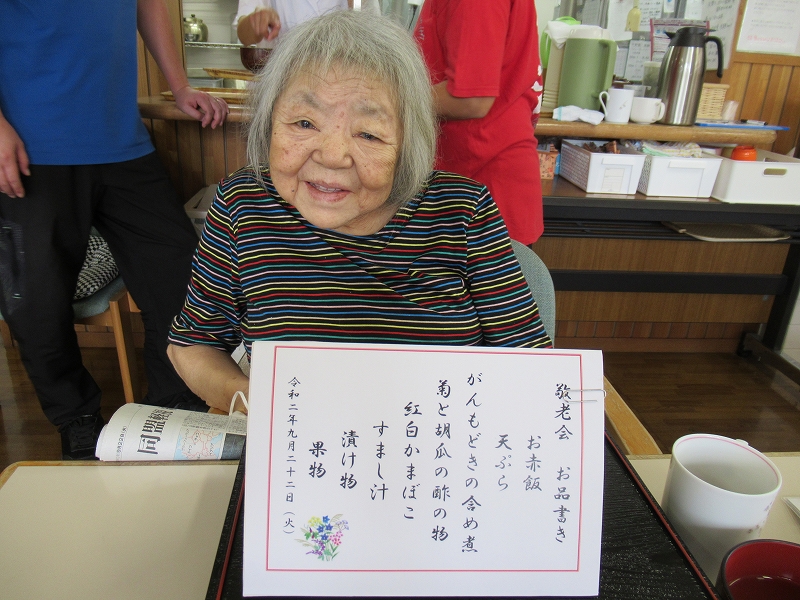 敬老会　お品書き
お赤飯
天ぷら
がんもどきの含め煮
菊と胡瓜の酢の物
紅白かまぼこ
すまし汁
漬け物
果物
令和二年九月二十二日（火）
同盟